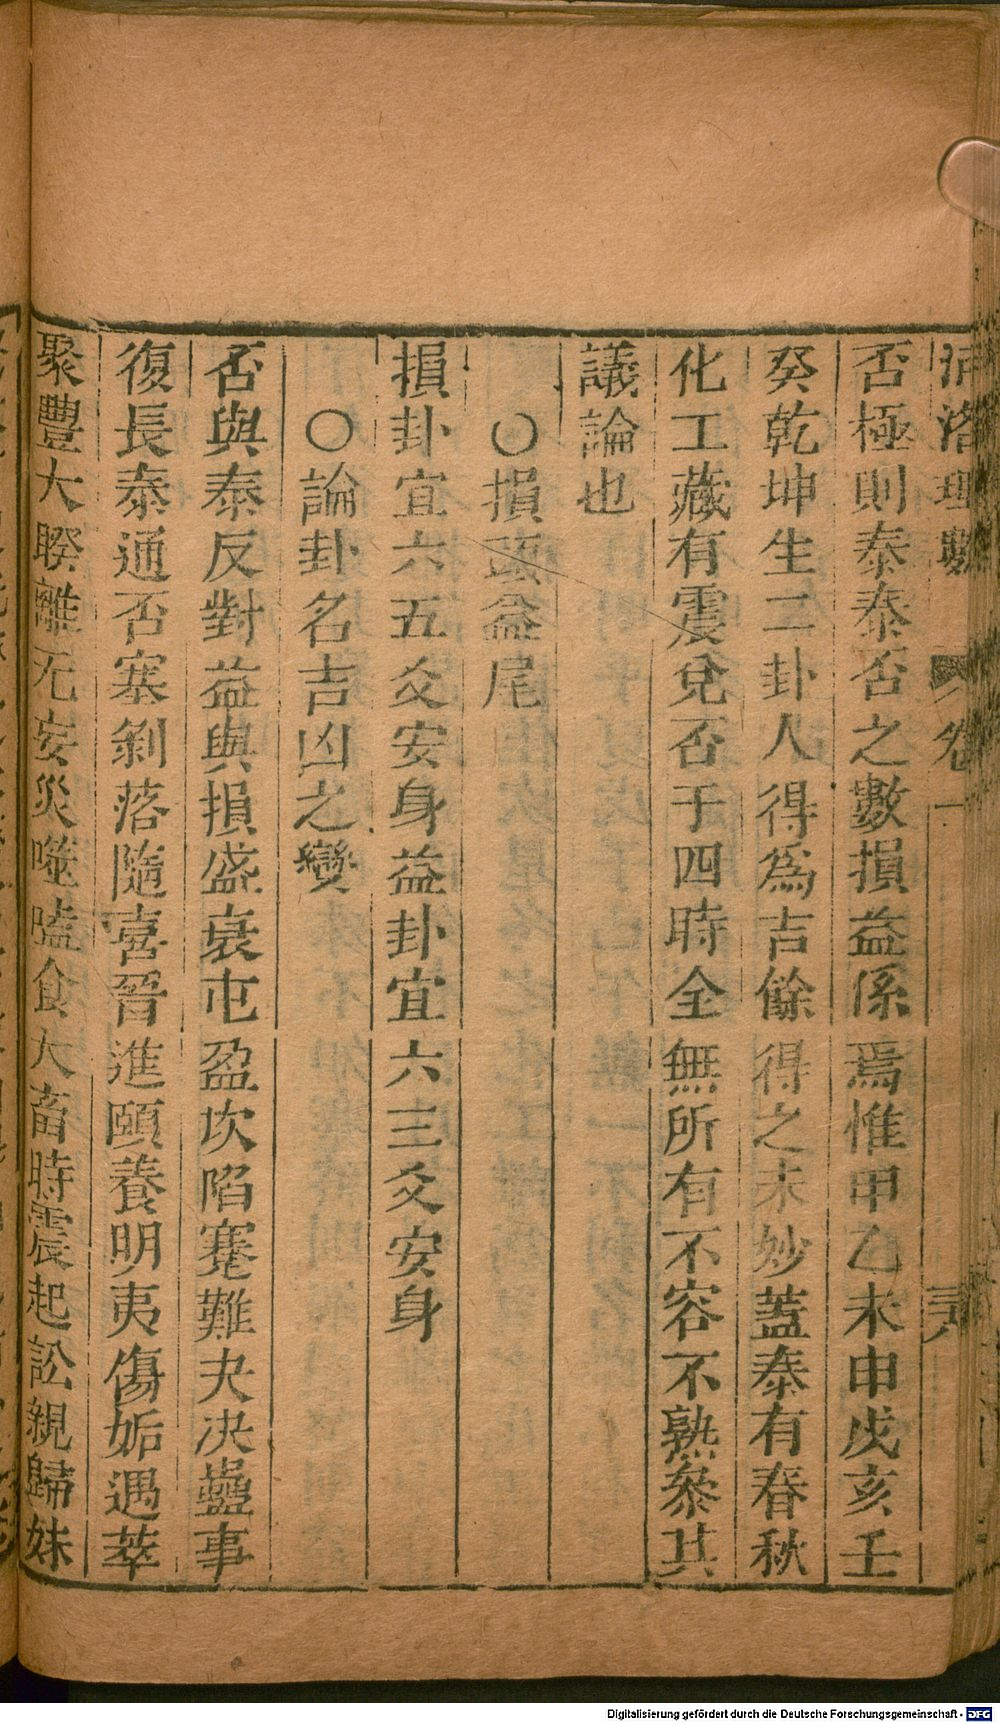 河洛理數 卷一 三八
否極則泰泰否之數損益係焉惟甲乙未申戊亥壬
癸乾坤生二卦人得爲吉餘得之未妙蓋泰有春秋
化工藏有震兌否于四時全無所有不容不熟叅其
議論也
○損頭益尾
損卦宜六五爻安身益卦宜六三爻安身
○論卦名吉凶之變
否與泰反對益與損盛衰屯盈坎陷蹇難夬决蠱事
復長泰通否塞剝落隨喜晉進頤養明夷傷姤遇萃
聚豐大睽離无妄災噬嗑食大畜時震起訟親歸妹
Digitalisierung gefördert durch die Deutsche Forschungsgemeinschaft - DFG